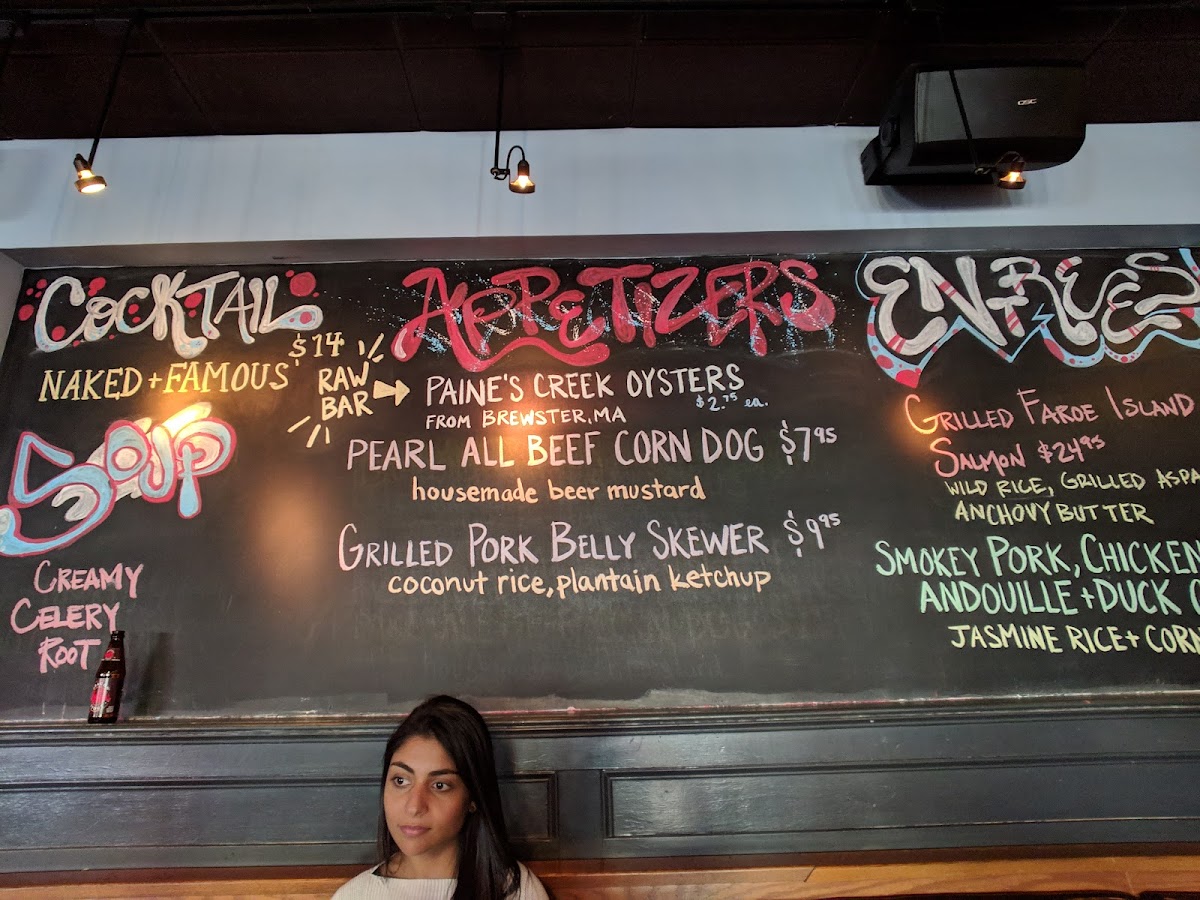 COCKTAIL
$14
NAKED + FAMOUS
SOUP
CREAMY
CELERY
ROOT
APPETIZERS
RAW
BAR
PAINE'S CREEK OYSTERS
$2.75 ea.
FROM BREWSTER, MA
PEARL ALL BEEF CORN DOG $7.95
housemade beer mustard
GRILLED PORK BELLY SKEWER $9.95
coconut rice, plantain ketchup
ENTREES
GRILLED FAROE ISLAND
SALMON $24.95
WILD RICE, GRILLED ASPA
ANCHOVY BUTTER
SMOKEY PORK, CHICKEN
ANDOUILLE + DUCK
JASMINE RICE + COR
QSC